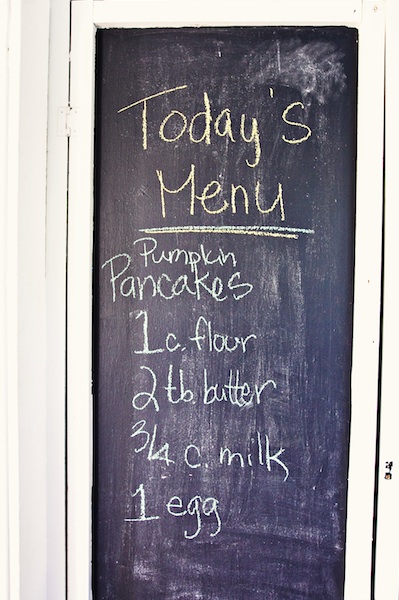 Today's
Menu
Pumpkin
Pancakes
1 c. flour
2 tb. butter
3/4 c. milk
1 egg